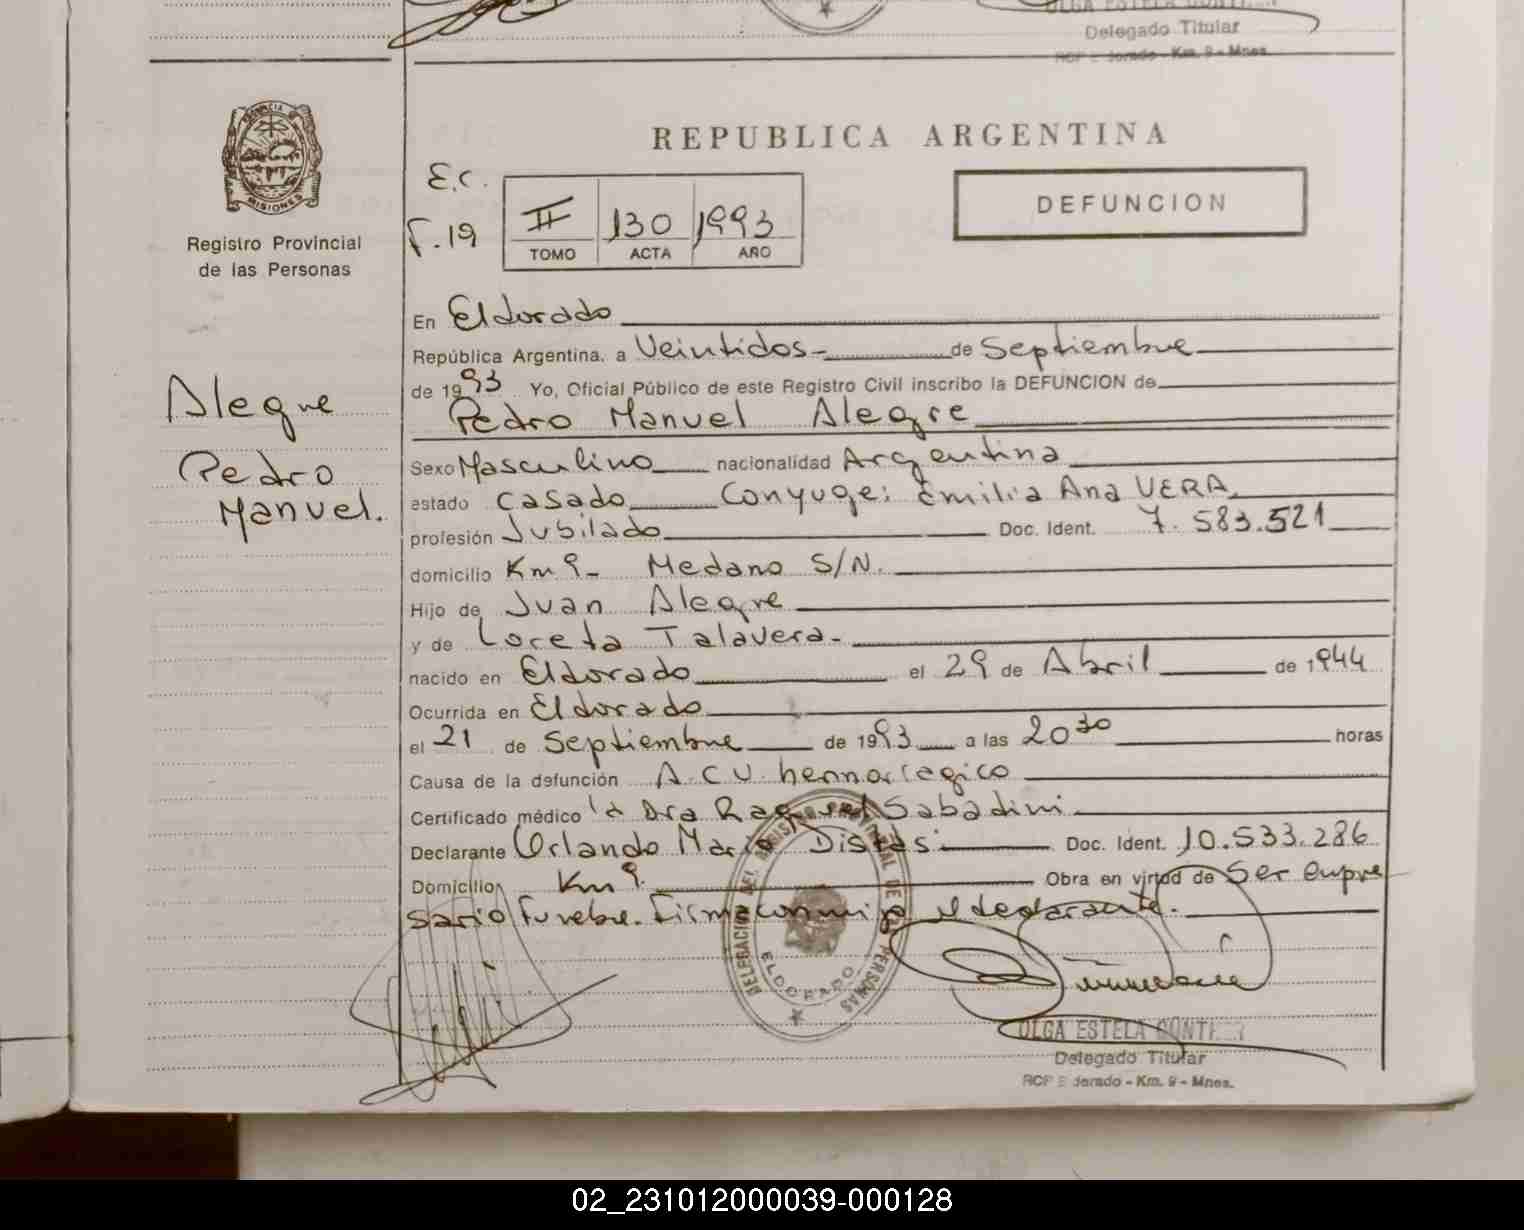 Delegado Titular
PROVINCIA DE
MISIONES
REPUBLICA ARGENTINA
E.C.
DEFUNCION
F.19
II 130 1993
TOMO ACTA AÑO
Registro Provincial
de las Personas
En Eldorado
República Argentina, a Veintidos- de Septiembre
de 1993 Yo, Oficial Público de este Registro Civil inscribo la DEFUNCION de
Pedro Manuel Alegre
Alegre
Pedro
Manuel.
Sexo Masculino nacionalidad Argentina
estado casado Conyuge: Emilia Ana VERA
profesión Jubilado Doc. Ident. 7.583.521
domicilio Km 9- Medano S/N.
Hijo de Juan Alegre
y de Loreta Talavera-
nacido en Eldorado el 29 de Abril de 1944
Ocurrida en Eldorado
el 21 de Septiembre de 1993 a las 20 30 horas
Causa de la defunción A.C.V. hemorragico
Certificado médico Dra Raquel Sabadini
Declarante Orlando Mario Doc. Ident. 10.533.286
Domicilio Km 9. Obra en virtud de Ser empre
sario Funebre. Firma conmigo el declarante.
DELEGACION DEL REGISTRO PROVINCIAL DE LAS PERSONAS
ELDORADO
OLGA ESTELA
Delegado Titular
Km. 9 - Mnes.
02_231012000039-000128